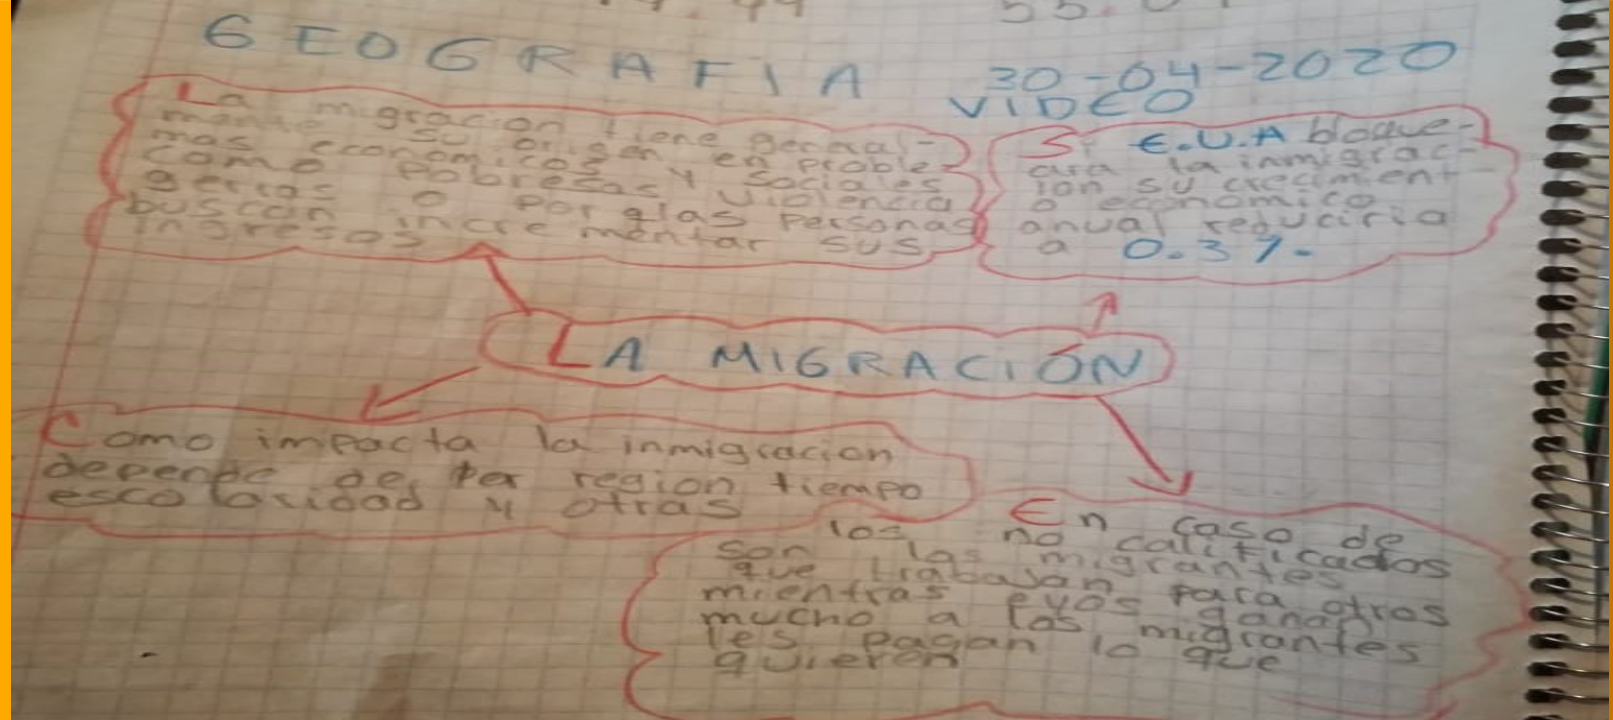 GEOGRAFIA
30-04-2020
VIDEO
La migracion tiene general-
mente su origen en proble-
mas economicos y sociales
como pobresas violencia
gerras o por q las personas
buscan incrementar sus
ingresos
Si E.U.A bloque-
ara la inmigrac-
ion su crecimient
o economico
anual reduciria
a 0.3%.
LA MIGRACIÓN
Como impacta la inmigracion
depende de per region tiempo
escolaridad y otras
En caso de
los no calificados
son las migrantes
que trabajan para otros
mientras eyos ganan
mucho a los migrantes
les pagan lo que
quieren